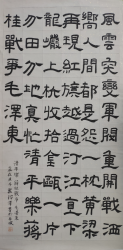 風雲突變軍閥重開戰洒
嚮人間都是怨一枕黃粱
再現紅旗越過汀江直下
龍巖上杭收拾金甌一片
分田分地真忙清平樂蔣
桂戰爭毛澤東